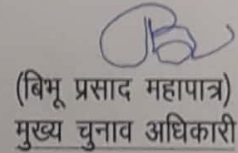 (बिभू प्रसाद महापात्र)
मुख्य चुनाव अधिकारी